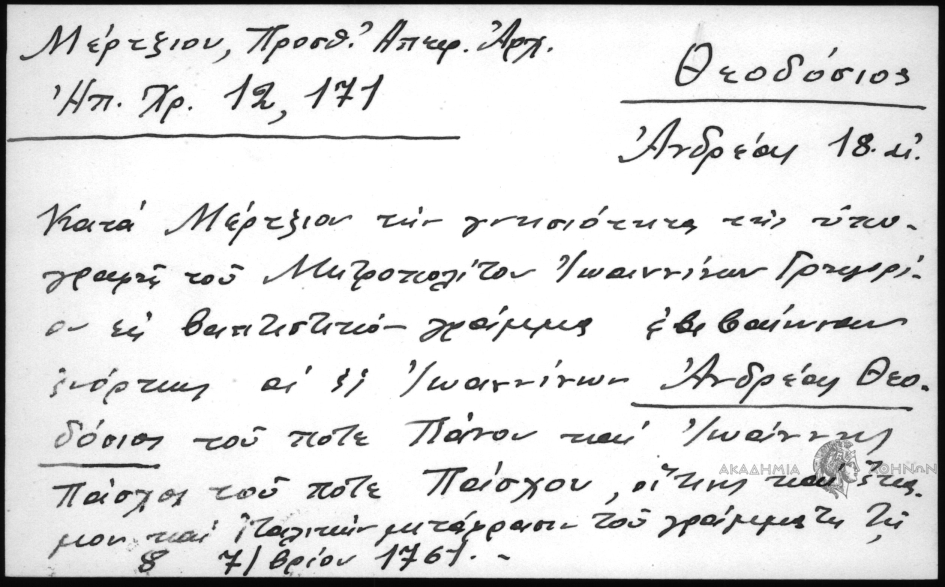 Μέρτζιου, Προσθ. Ἠπειρ. Ἀρχ.
Ἠπ. Χρ. 12, 171
Θεοδόσιος
Ἀνδρέας 18. αἰ.
Κατὰ Μέρτζιον τὴν γνησιότητα τῆς ὑπο-
γραφῆς τοῦ Μητροπολίτου Ἰωαννίνων Γρηγορί-
ου εἰς βαπτιστικὸν γράμμα ἐβεβαίωσαν
ἐνόρκως οἱ ἐξ Ἰωαννίνων Ἀνδρέας Θεο-
δόσιος τοῦ ποτε Πάνου καὶ Ἰωάννης
Πάσχος τοῦ ποτε Πάσχου, οἵτινες καὶ ἔκα-
μον καὶ ἰταλικὴν μετάφρασιν τοῦ γράμματος τῇ
8 7/βρίου 1761.-
ΑΚΑΔΗΜΙΑ ΑΘΗΝΩΝ